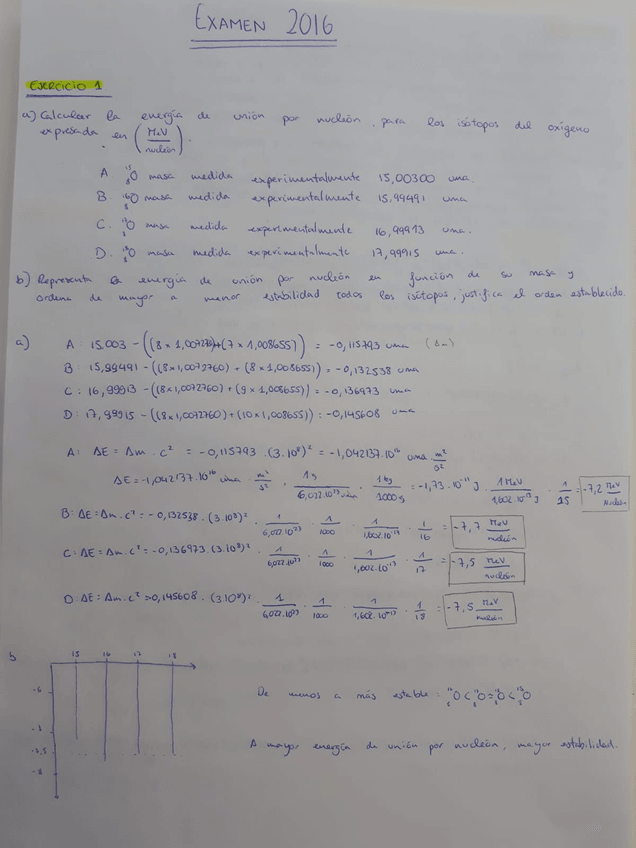 EXAMEN 2016
EJERCICIO 1
a) Calcular la energía de unión por nucleón, para los isótopos del oxígeno
expresada en (MeV/nucleón).
A ¹⁵₈O masa medida experimentalmente 15,00300 uma.
B. ¹⁶₈O masa medida experimentalmente 15,99491 uma
C. ¹⁷₈O masa medida experimentalmente 16,99913 uma.
D. ¹⁸₈O masa medida experimentalmente 17,99915 uma.
b) Representa la energía de unión por nucleón en función de su masa y
ordena de mayor a menor estabilidad todos los isótopos, justifica el orden establecido.
a) A: 15,003 - ((8 x 1,0072760)+(7 x 1,008655)) = -0,115793 uma (Δm)
B: 15,99491 - ((8x1,0072760) + (8x1,008655)) = -0,132538 uma
C: 16,99913 - ((8x1,0072760) + (9x1,008655)) = -0,136973 uma
D: 17,99915 - ((8x1,0072760) + (10x1,008655)) = -0,145608 uma
A: ΔE = Δm . c² = -0,115793 . (3.10⁸)² = -1,042137.10¹⁶ uma m²/s²
ΔE = -1,042137.10¹⁶ uma . m²/s² . 1g/6,022.10²³ uma . 1kg/1000g = -1,73.10⁻¹¹ J . 1MeV/1,602.10⁻¹³ J . 1/15 = -7,2 MeV/nucleón
B: ΔE = Δm.c² = -0,132538 . (3.10⁸)² . 1/6,022.10²³ . 1/1000 . 1/1,602.10⁻¹³ . 1/16 = -7,7 MeV/nucleón
C: ΔE = Δm.c² = -0,136973 . (3.10⁸)² . 1/6,022.10²³ . 1/1000 . 1/1,602.10⁻¹³ . 1/17 = -7,5 MeV/nucleón
D: ΔE = Δm.c² = -0,145608 . (3.10⁸)² . 1/6,022.10²³ . 1/1000 . 1/1,602.10⁻¹³ . 1/18 = -7,5 MeV/nucleón
b
15 16 17 18
-6
-7,5
-8
De menos a más estable:
A mayor energía de unión por nucleón, mayor estabilidad.